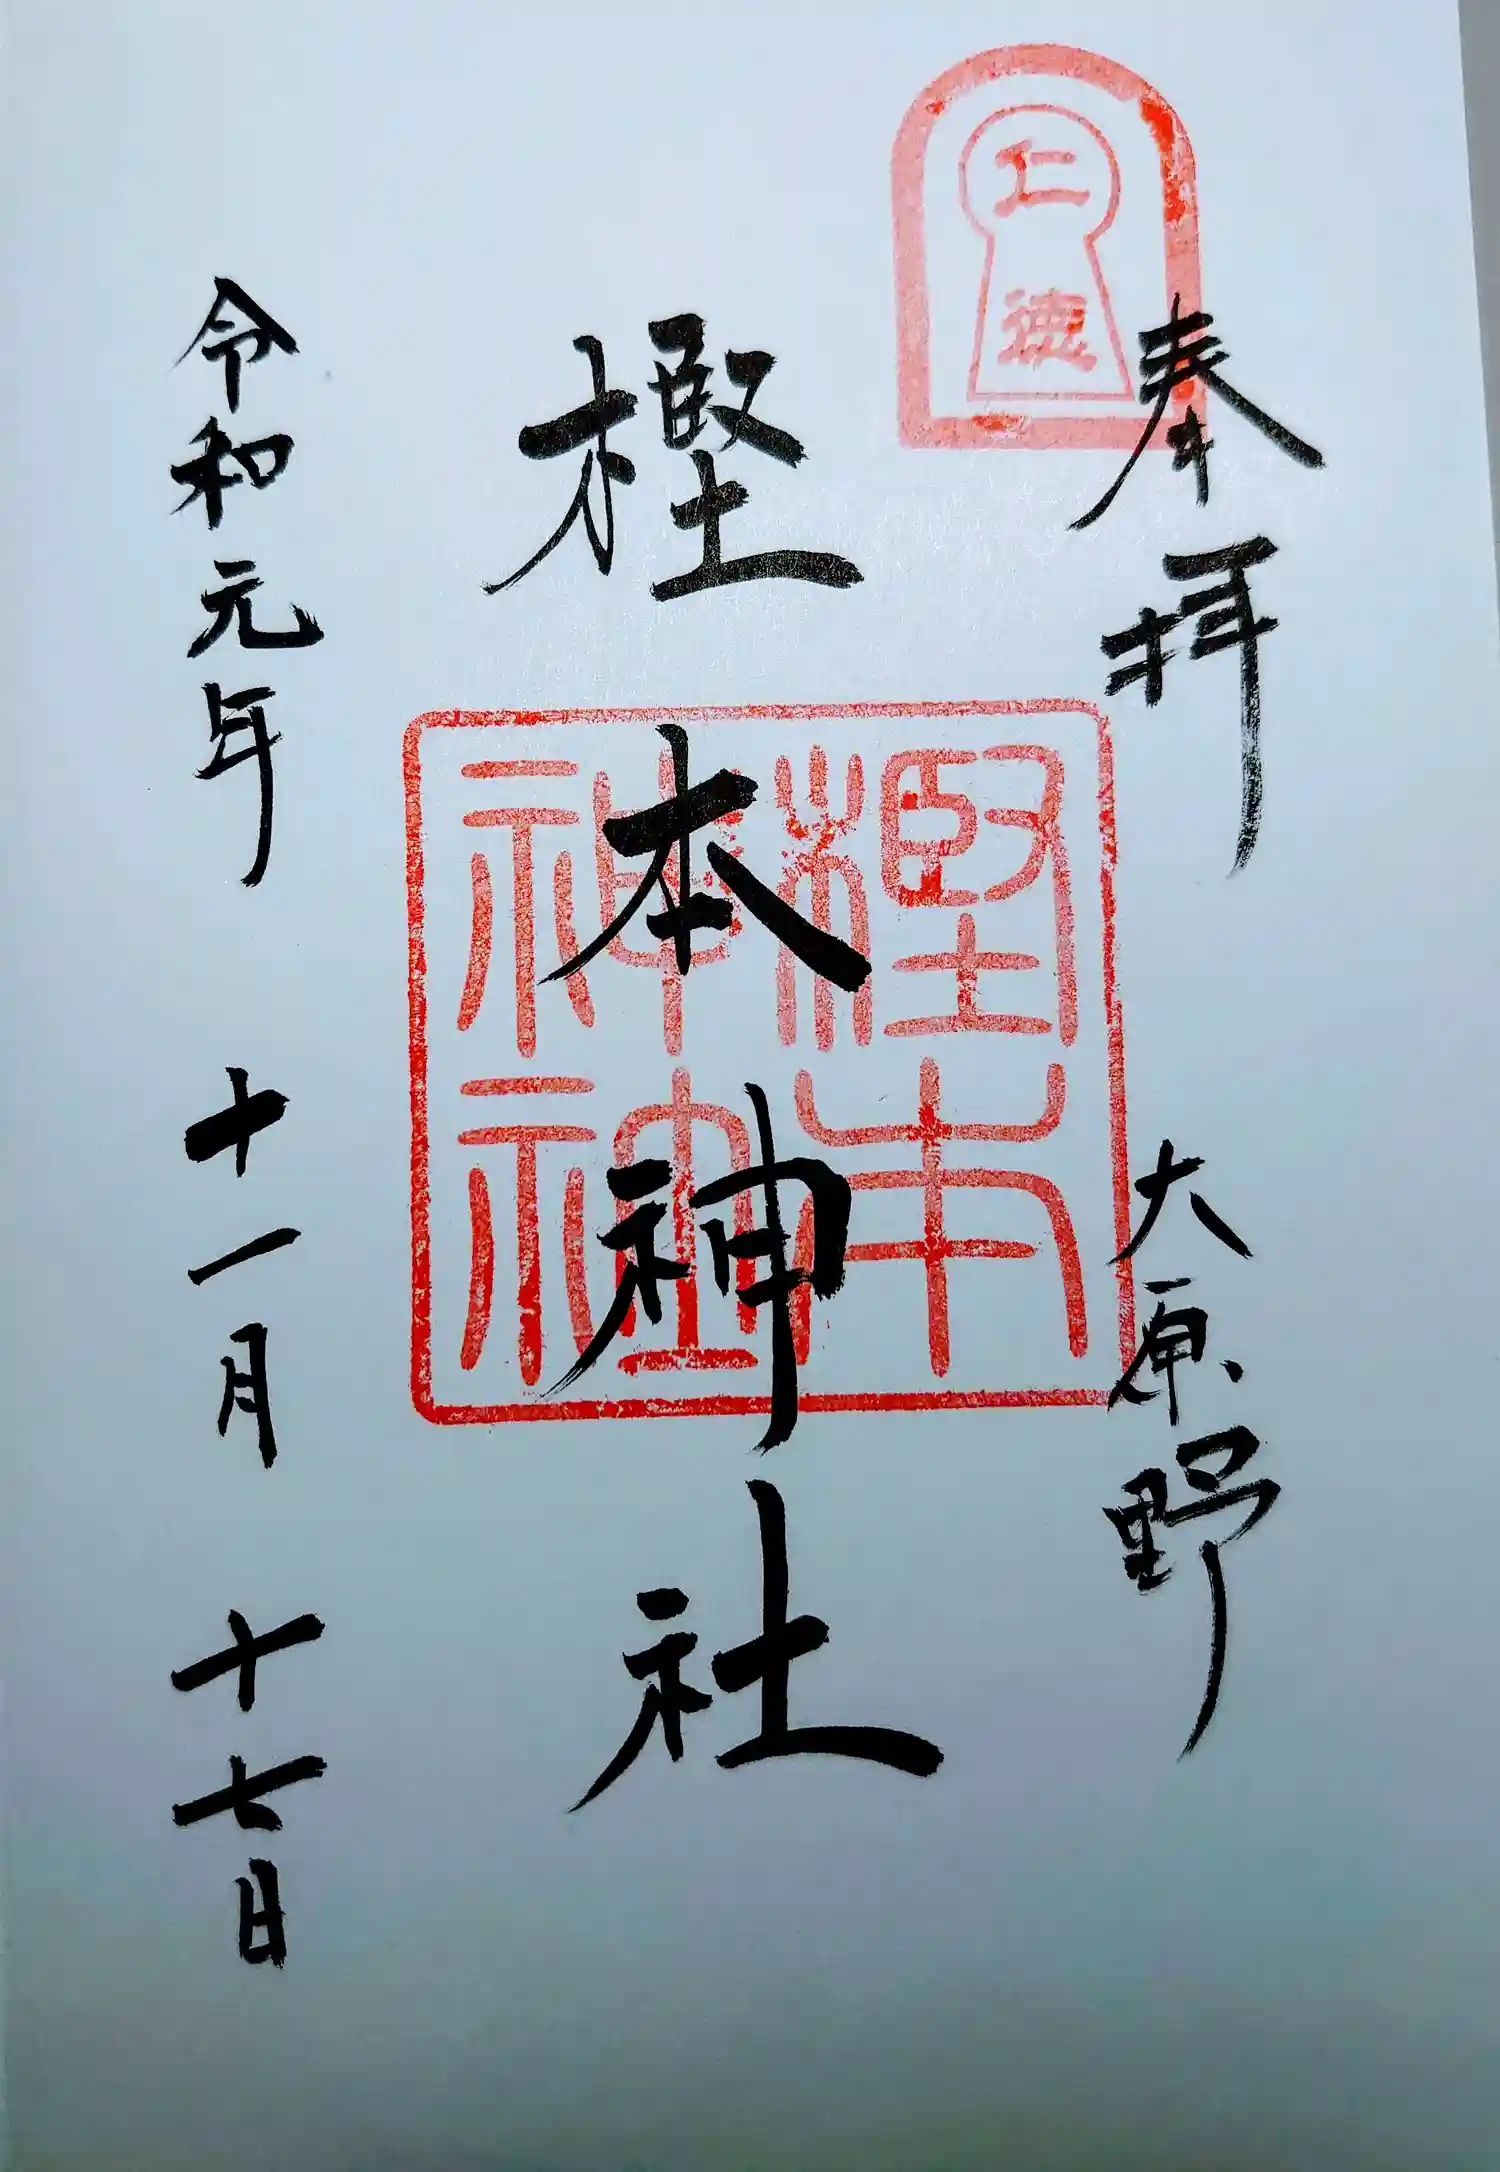 奉拝
大原野
仁
徳
樫本神社
樫本
神社
令和元年十一月十七日